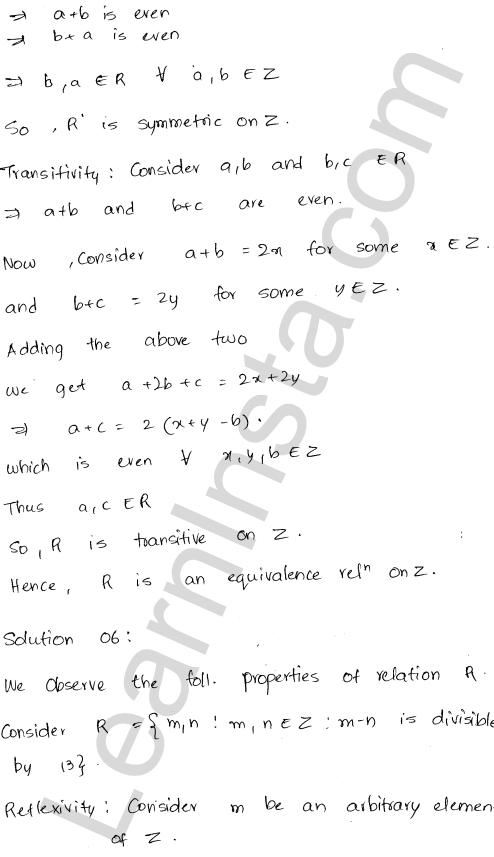 ⇒ a+b is even
⇒ b+a is even
⇒ b,a ∈ R ∀ a,b ∈ Z
So, R is symmetric on Z.
Transitivity: Consider a,b and b,c ∈ R
⇒ a+b and b+c are even.
Now, Consider a+b = 2x for some x ∈ Z.
and b+c = 2y for some y ∈ Z.
Adding the above two
we get a+2b+c = 2x+2y
⇒ a+c = 2(x+y-b).
which is even ∀ x,y,b ∈ Z
Thus a,c ∈ R
So, R is transitive on Z.
Hence, R is an equivalence relⁿ on Z.
Solution 06:
We Observe the foll. properties of relation R.
Consider R = {m,n : m,n ∈ Z : m-n is divisible
by 13}.
Reflexivity: Consider m be an arbitrary elemen
of Z.
LearnInsta.com